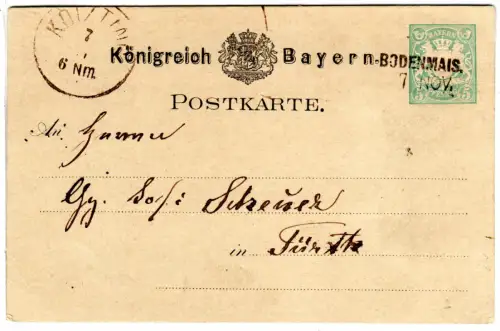 KÖTZTING
7
6 Nm.
Königreich Bayern
BODENMAIS.
7 NOV.
POSTKARTE.
An Herrn
Gg. Jos: Scheuer
in Fürth